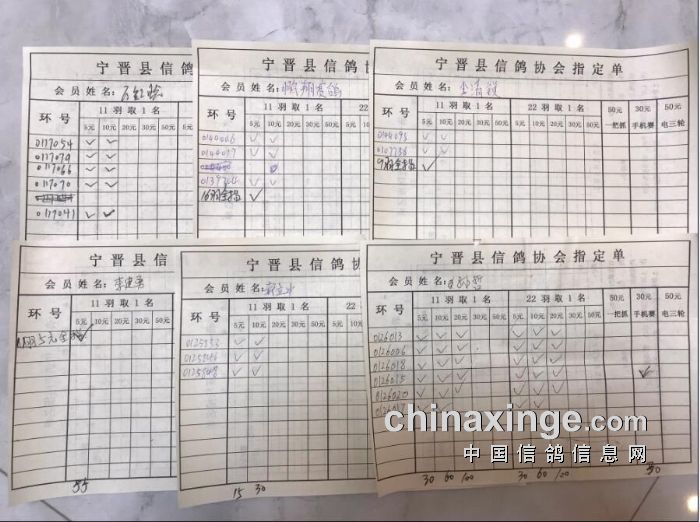 宁晋县信鸽
会员姓名:
环号
11羽取1名
5元 10元 20元 30元 50元
0117054
0117079
0117066
0117070
0117041
宁晋县信鸽协
会员姓名:
环号
11羽取1名 22
5元 10元 20元 30元 50元
宁晋县信鸽协会指定单
会员姓名:
环号
11羽取1名 22羽取1名 50元 30元 50元
5元 10元 20元 30元 50元 5元 10元 20元 30元 50元 一把抓 手机赛 电三轮
0107738
宁晋县信鸽
会员姓名:李建勇
环号
11羽取1名
5元 10元 20元 30元 50元
55
宁晋县信鸽协
会员姓名:
环号
11羽取1名 22
5元 10元 20元 30元 50元
0125553
0125546
0125548
15 30
宁晋县信鸽协会指定单
会员姓名:
环号
11羽取1名 22羽取1名 50元 30元 50元
5元 10元 20元 30元 50元 5元 10元 20元 30元 50元 一把抓 手机赛 电三轮
0126013
0126006
0126018
0126015
0126020
30 60 100 30 60 100 50
chinaxinge.com
中国信鸽信息网